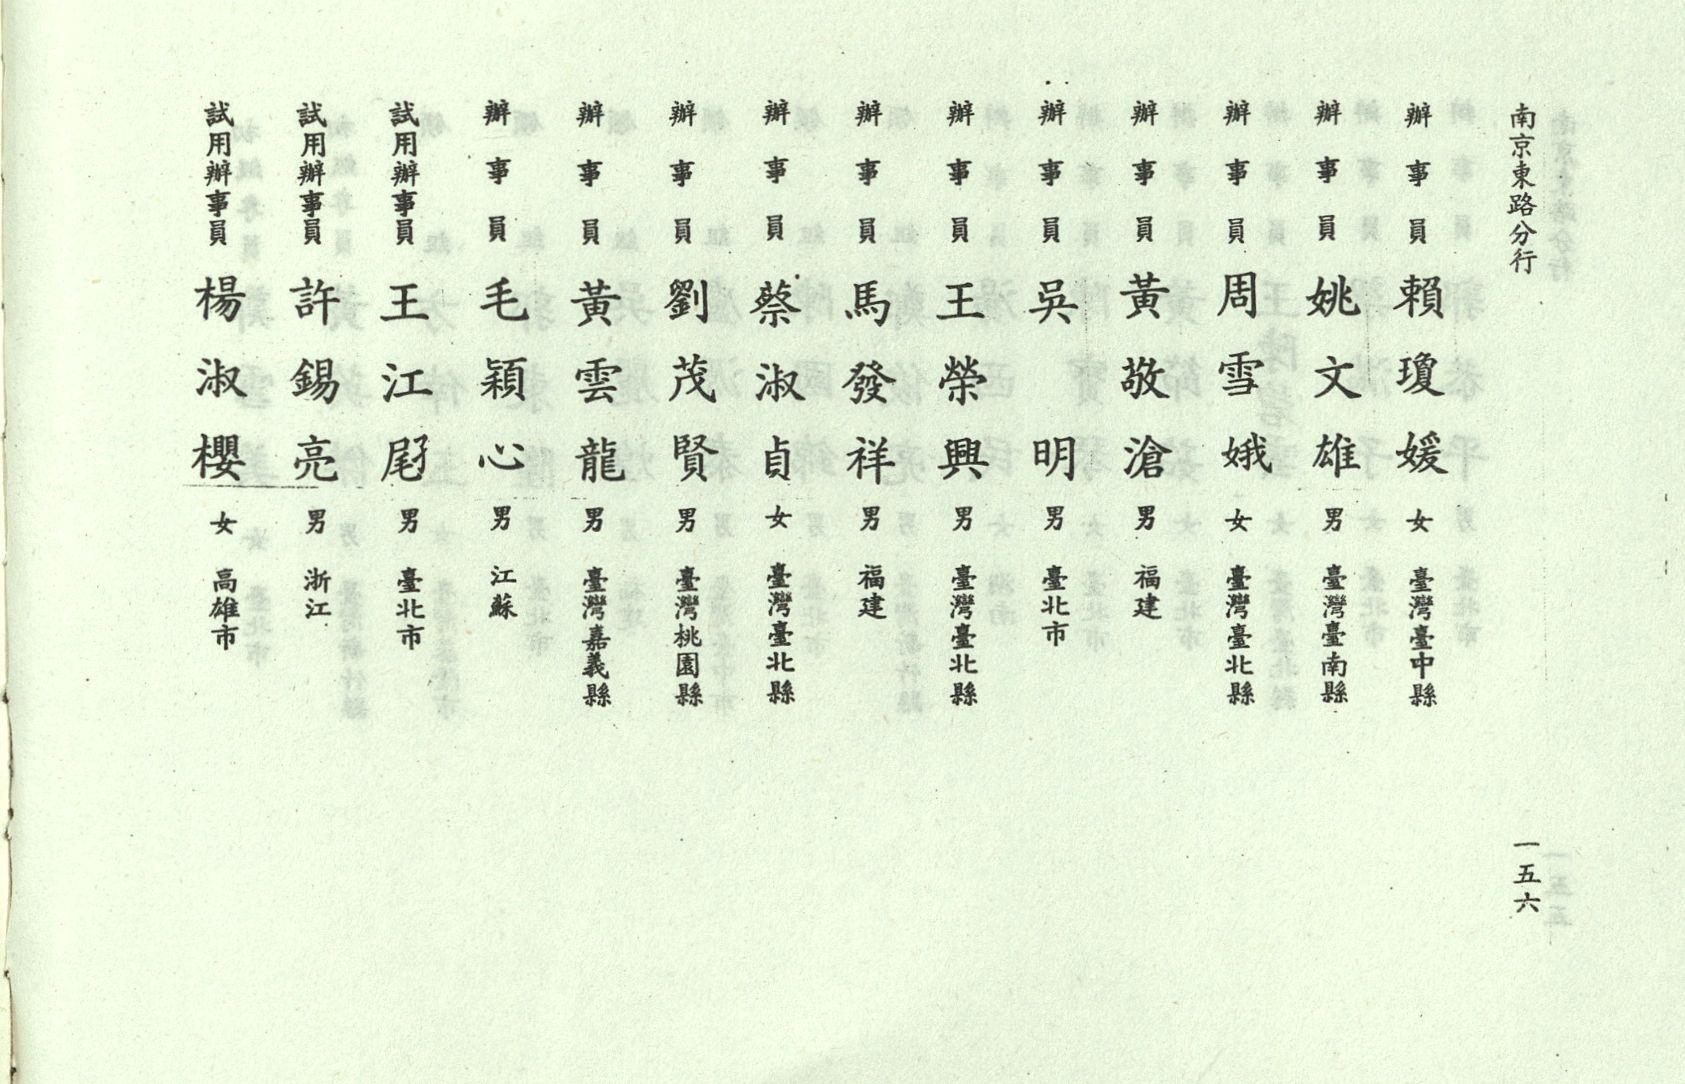 南京東路分行
辦事員 賴瓊媛 女 臺灣臺中縣
辦事員 姚文雄 男 臺灣臺南縣
辦事員 周雪娥 女 臺灣臺北縣
辦事員 黃敬滄 男 福建
辦事員 吳明 男 臺北市
辦事員 王榮興 男 臺灣臺北縣
辦事員 馬發祥 男 福建
辦事員 蔡淑貞 女 臺灣臺北縣
辦事員 劉茂賢 男 臺灣桃園縣
辦事員 黃雲龍 男 臺灣嘉義縣
辦事員 毛穎心 男 江蘇
試用辦事員 王江 男 臺北市
試用辦事員 許錫亮 男 浙江
試用辦事員 楊淑櫻 女 高雄市
一五六